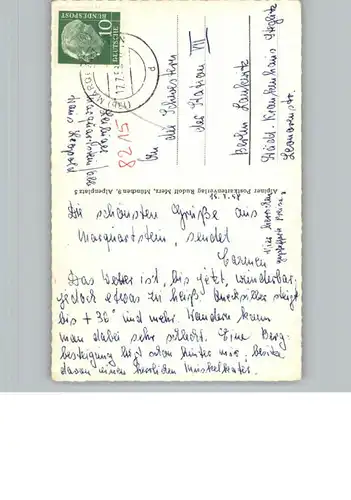 DEUTSCHE
BUNDESPOST
10
17.7.
d
8215
An die Schwestern
der Station III
Berlin Lankwitz
Städt. Krankenhaus Steglitz
Leonorenstr.
Alpiner Postkartenverlag Rudolf Metz, München, 9, Alpenplatz 5
Die schönsten Grüße aus
Marquartstein, sendet
Carmen
Das Wetter ist, bis jetzt, wunderbar
jedoch etwas zu heiß. Quecksilber steigt
bis + 30° und mehr. Wandern kann
man dabei sehr schlecht. Eine Berg-
besteigung liegt schon hinter mir, besitze
davon einen herrlichen Muskelkater.